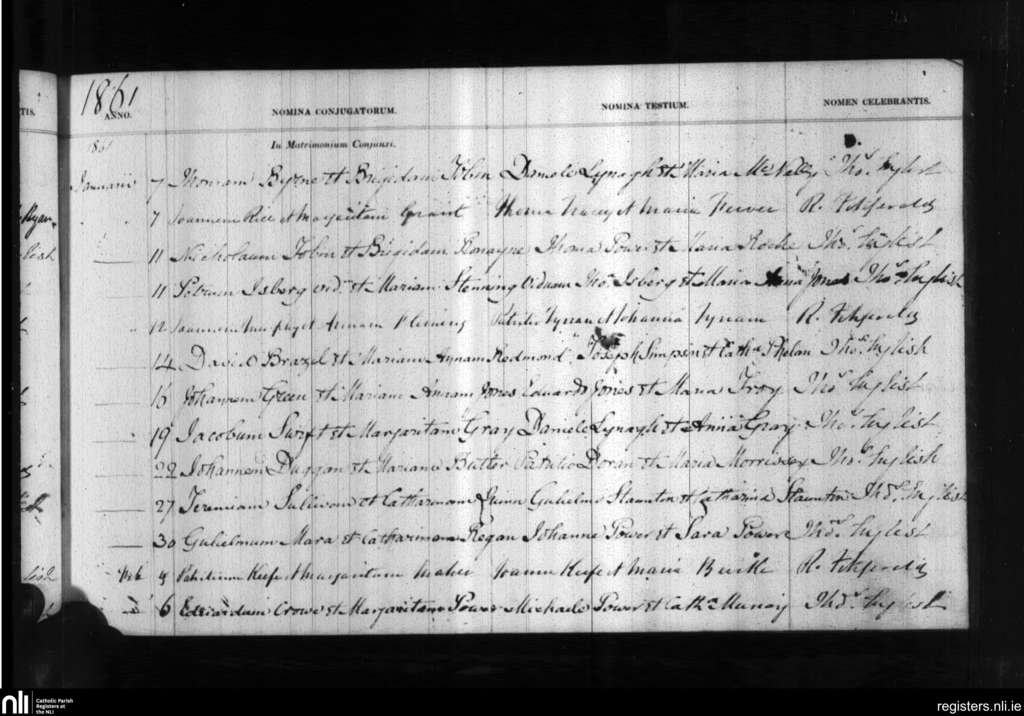 1861
TIS.
ANNO.
NOMINA CONJUGATORUM.
NOMINA TESTIUM.
NOMEN CELEBRANTIS.
1861
In Matrimonium Conjunxi.
Januarii 7 Thomam Byrne et Brigidam Tobin Daniele Lynagh et Maria McNally Thos. English
7 Joannem Rice et Margaritam Grant Thoma et Maria R. Fitzgerald
11 Nicholaum Tobin et Brigidam Ronayne Thoma Power et Maria Roche Thos. English
11 Petrum Isberg vid. et Mariam Viduam Thos. Isberg et Maria Anna Jones Thos. English
12 Joannem et Annam Fleming Patritio et Johanna R. Fitzgerald
14 David Brazel et Mariam Redmond Joseph Simpson et Cath. Phelan Thos. English
16 Johannem Green et Mariam Annam Jones Eduardo Jones et Maria Troy Thos. English
19 Jacobum Swift et Margaritam Gray Daniele Lynagh et Anna Gray Thos. English
22 Johannem Duggan et Mariam Butler Patritio Doran et Maria Morrissey Thos. English
27 Jeremiam Sullivan et Catharinam Quinn Gulielmo Staunton et Catharina Staunton Thos. English
30 Gulielmum Mara et Catharinam Regan Johanne Power et Sara Power Thos. English
Feb 4 Patritium Keefe et Margaritam Maher Joanne Keefe et Maria R. Fitzgerald
6 Eduardum Crowe et Margaritam Power Michaele Power et Cath. Thos. English
nli
Catholic Parish
Registers at
the NLI
registers.nli.ie